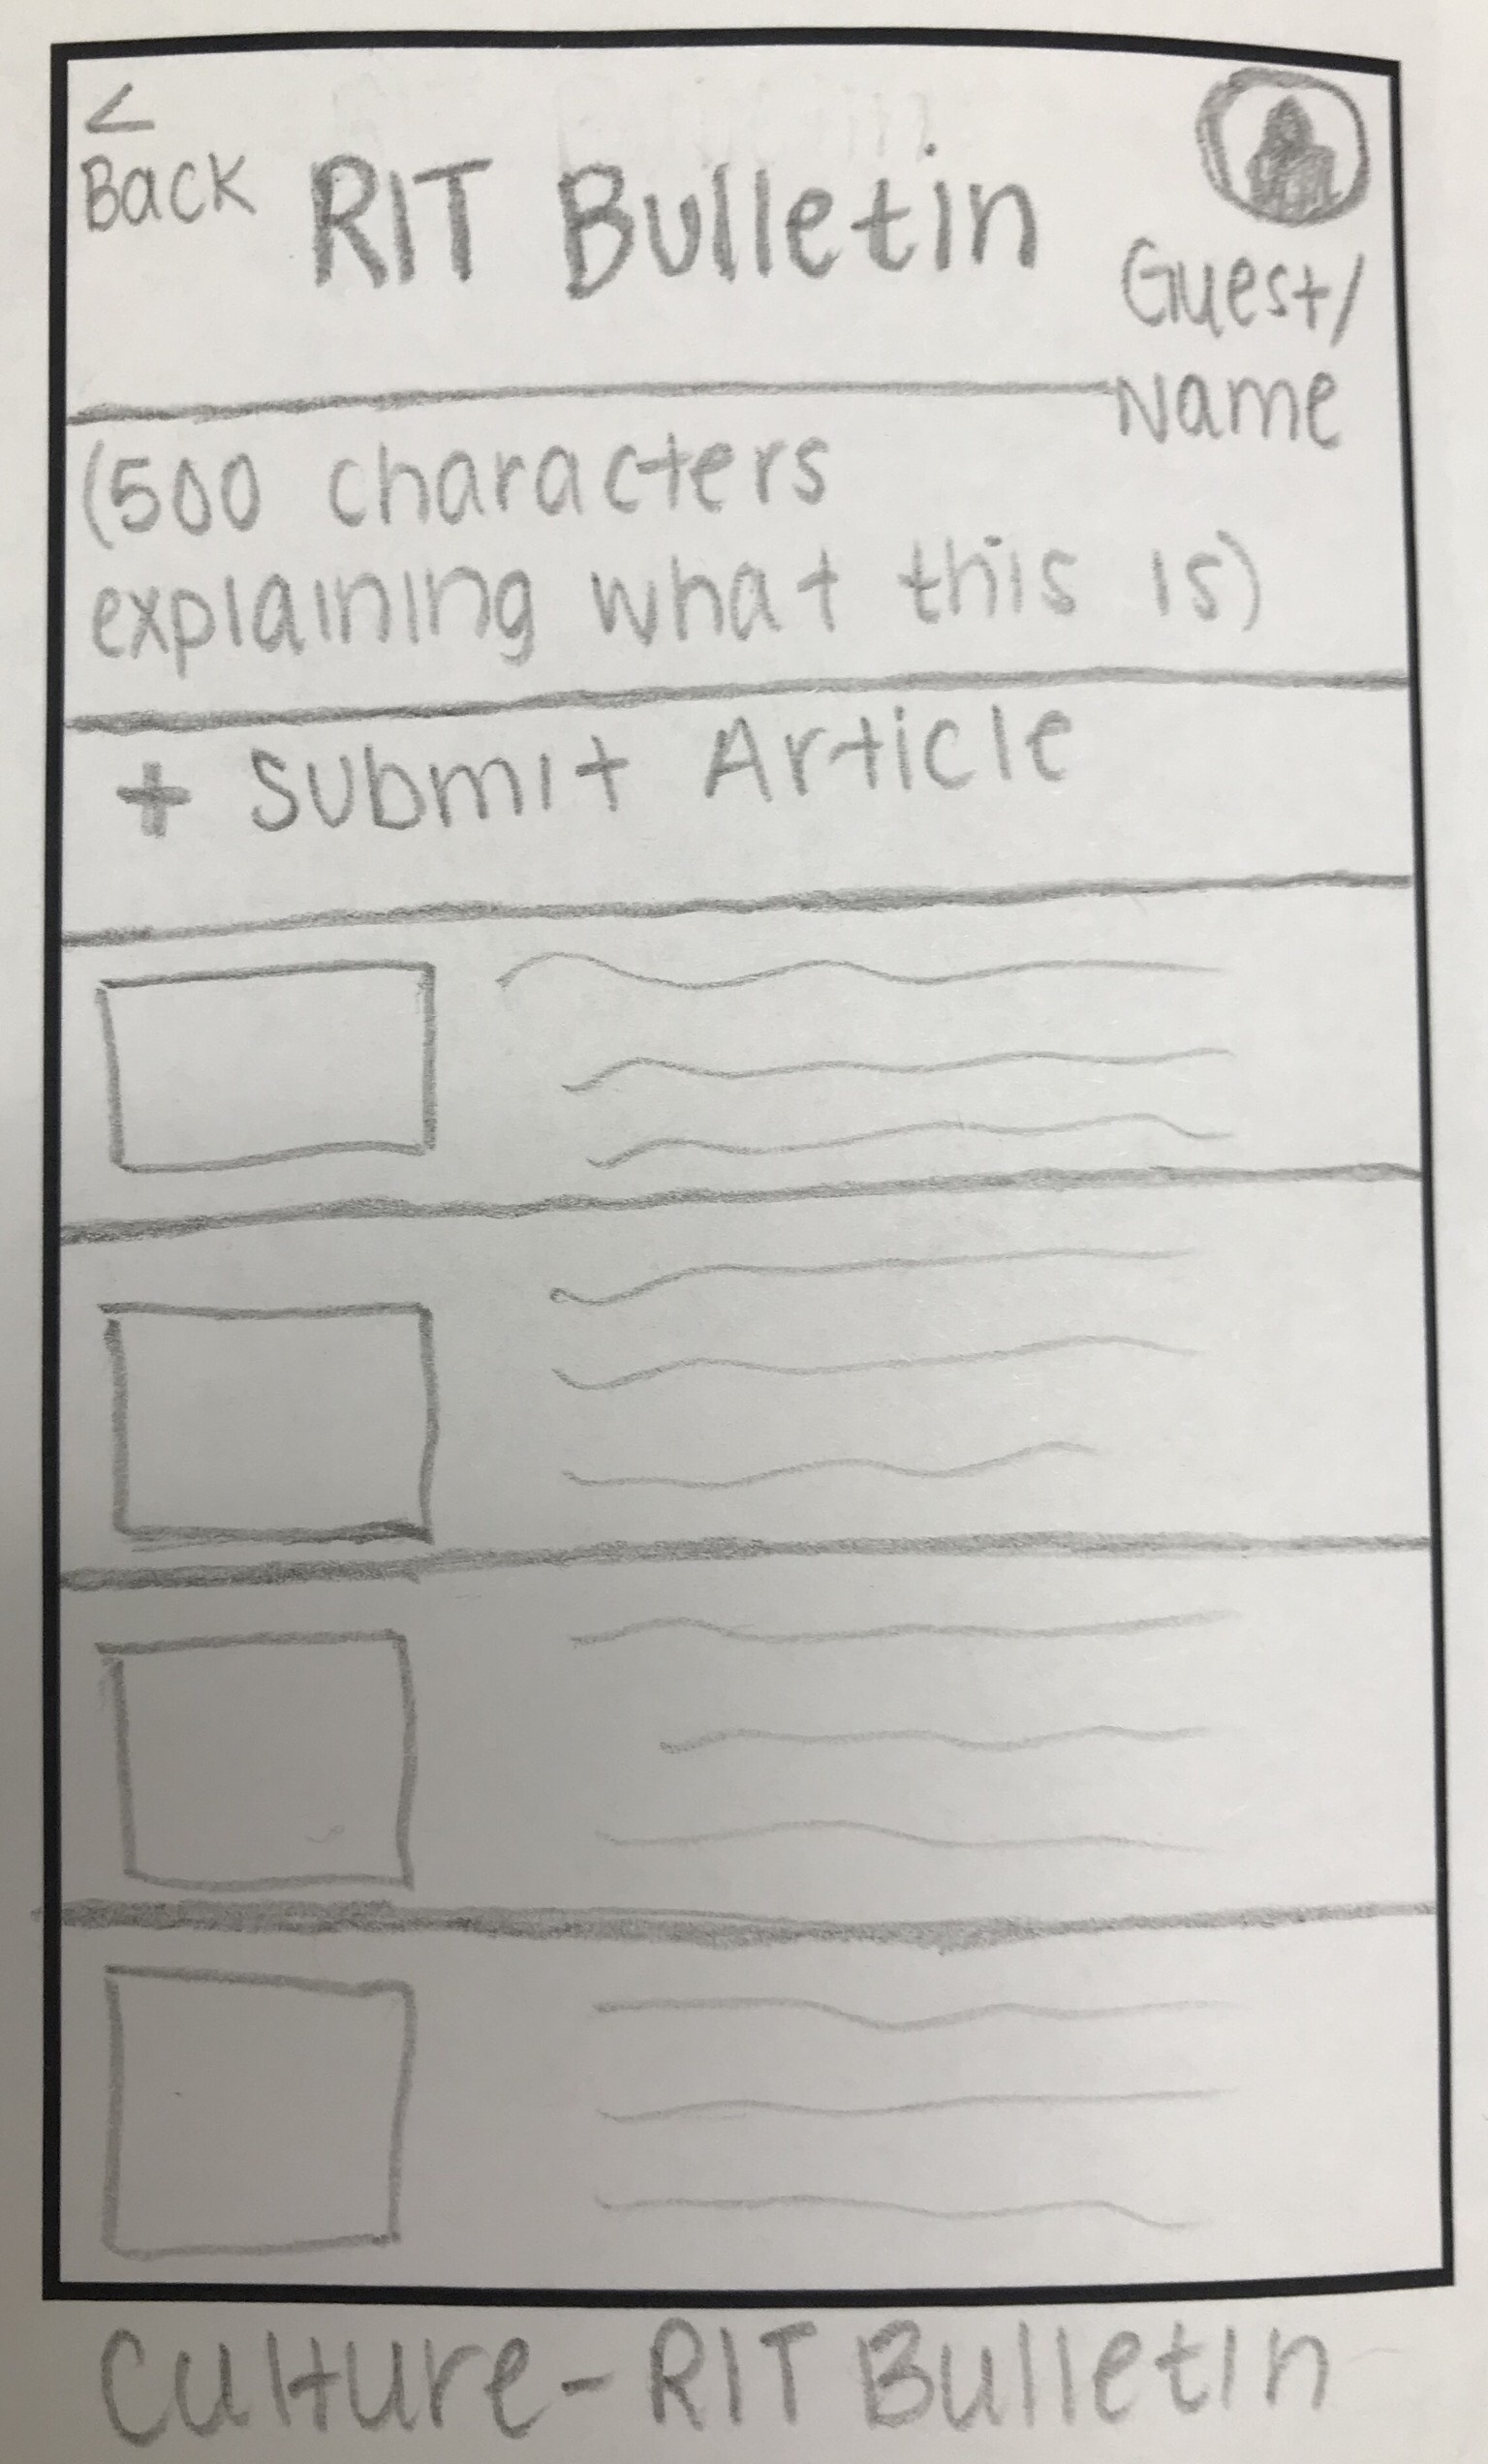 <
Back
RIT Bulletin
Guest/
Name
(500 characters
explaining what this is)
+ Submit Article
Culture-RIT Bulletin